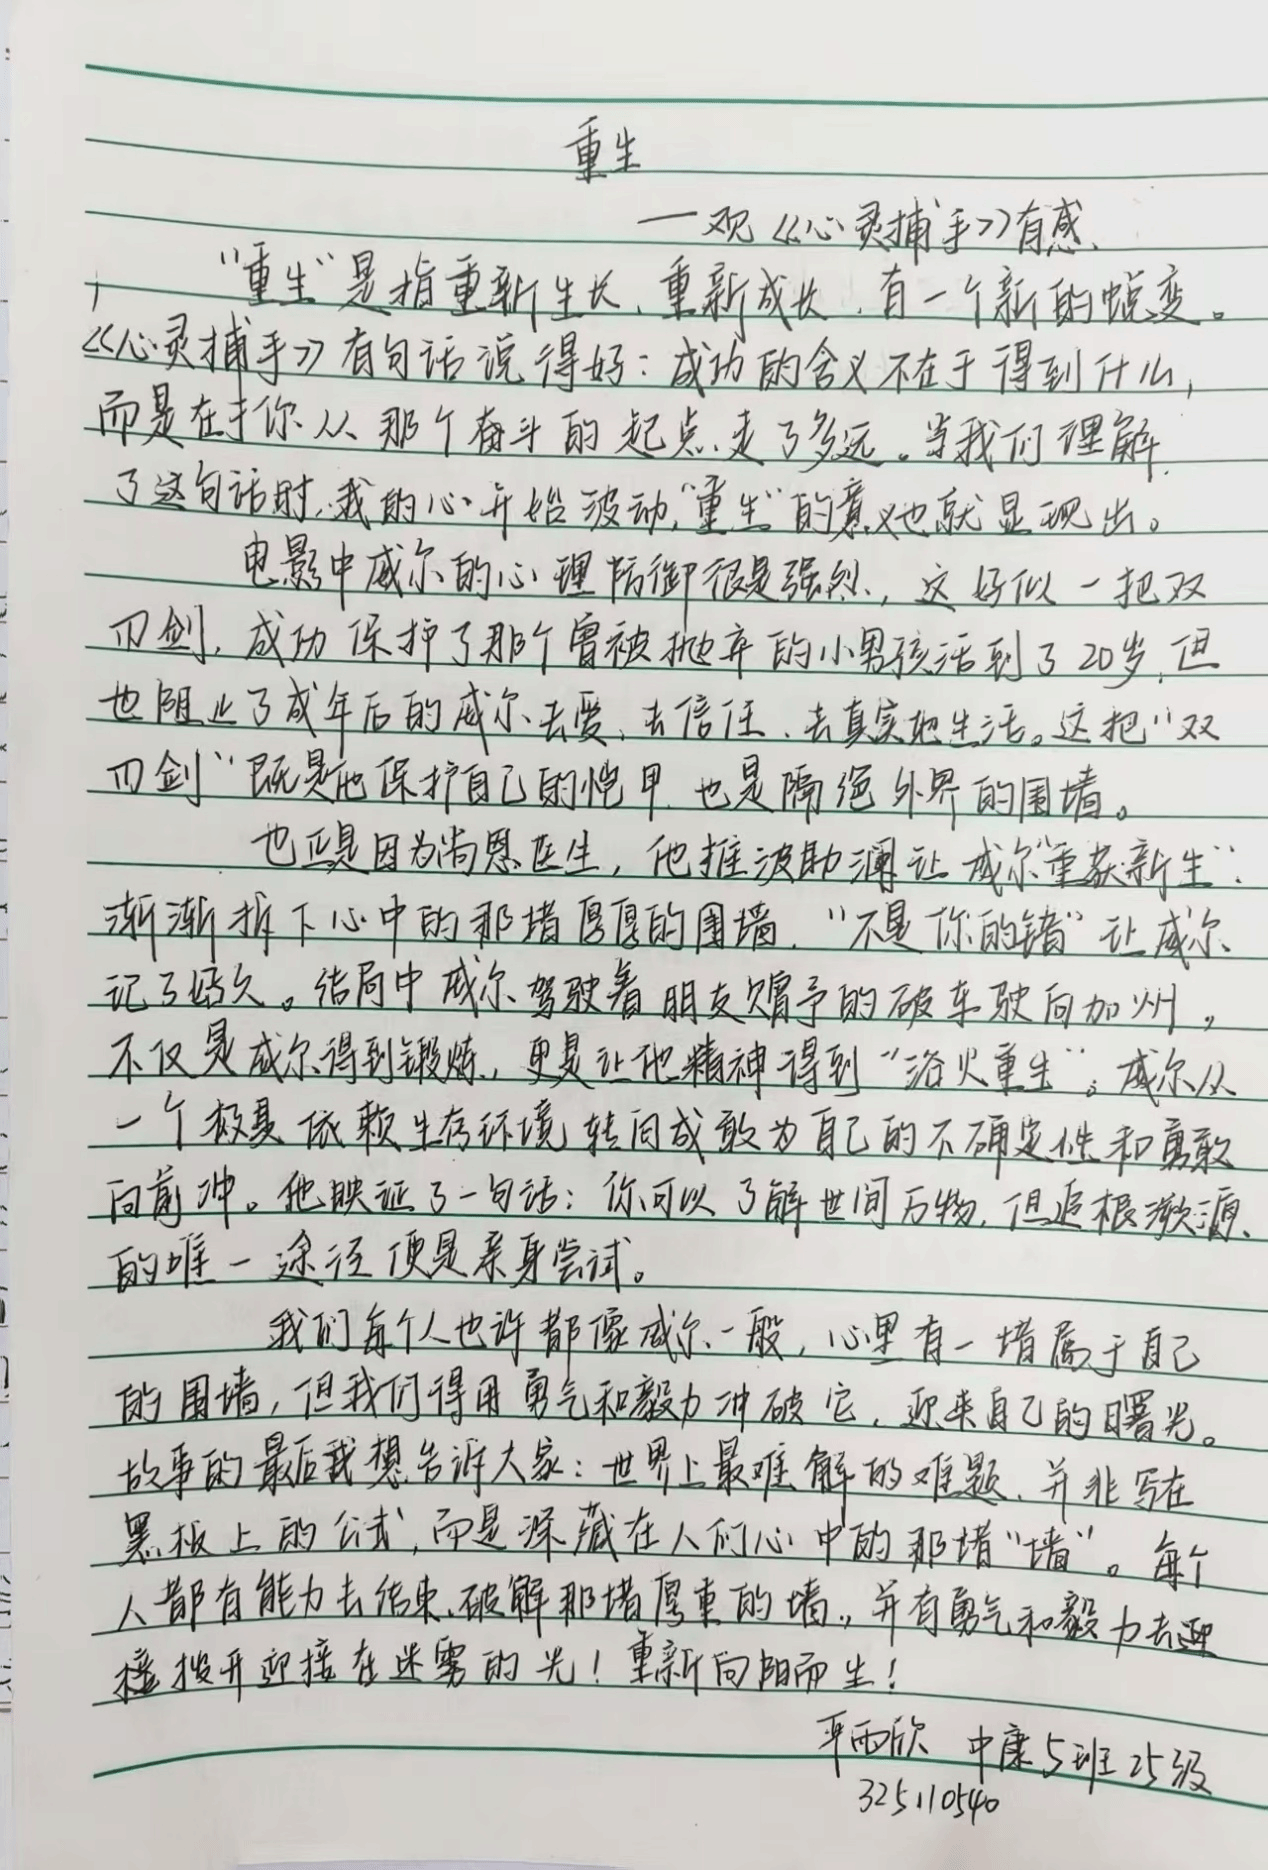 重生
一观《心灵捕手》有感、
"重生"是指重新生长、重新成长，有一个新的蜕变。
《心灵捕手》有句话说得好：成功的含义不在于得到什么，
而是在于你从那个奋斗的起点走了多远。当我们理解
了这句话时，我的心开始波动，"重生"的意义也就显现出。
电影中威尔的心理防御很是强烈，这好似一把双
刃剑，成功保护了那个曾被抛弃的小男孩活到了20岁，但
也阻止了成年后的威尔去爱、去信任、去真实地生活。这把"双
刃剑"既是他保护自己的恺甲，也是隔绝外界的围墙。
也正是因为尚恩医生，他推波助澜让威尔"重获新生"，
渐渐拆下心中的那堵厚厚的围墙，"不是你的错"让威尔
记了好久。结局中威尔驾驶着朋友赠予的破车驶向加州，
不仅是威尔得到锻炼，更是让他精神得到"浴火重生"。威尔从
一个极具依赖生存环境转向成敢为自己的不确定性和勇敢
向前冲。他映证了一句话：你可以了解世间万物，但追根溯源、
的唯一途径便是亲身尝试。
我们每个人也许都像威尔一般，心里有一堵属于自己
的围墙，但我们得用勇气和毅力冲破它，迎来自己的曙光。
故事的最后我想告诉大家：世界上最难解的难题，并非写在
黑板上的公式，而是深藏在人们心中的那堵"墙"。每个
人都有能力去结束、破解那堵厚重的墙，并有勇气和毅力去迎
接拨开迎接在迷雾的光！重新向阳而生！
平雨欣 中康5班25级
325110540